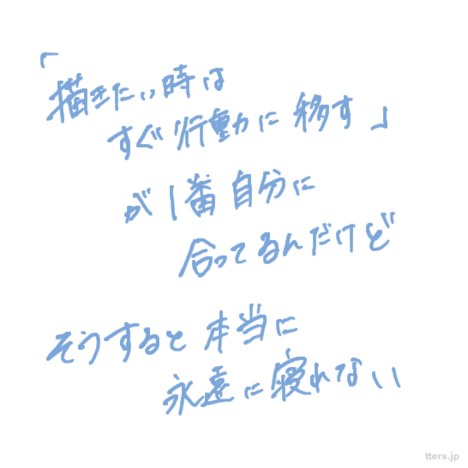 「
描きたい時は
すぐ行動に移す」
が1番自分に
合ってるんだけど
そうすると本当に
永遠に寝れない
tters.jp